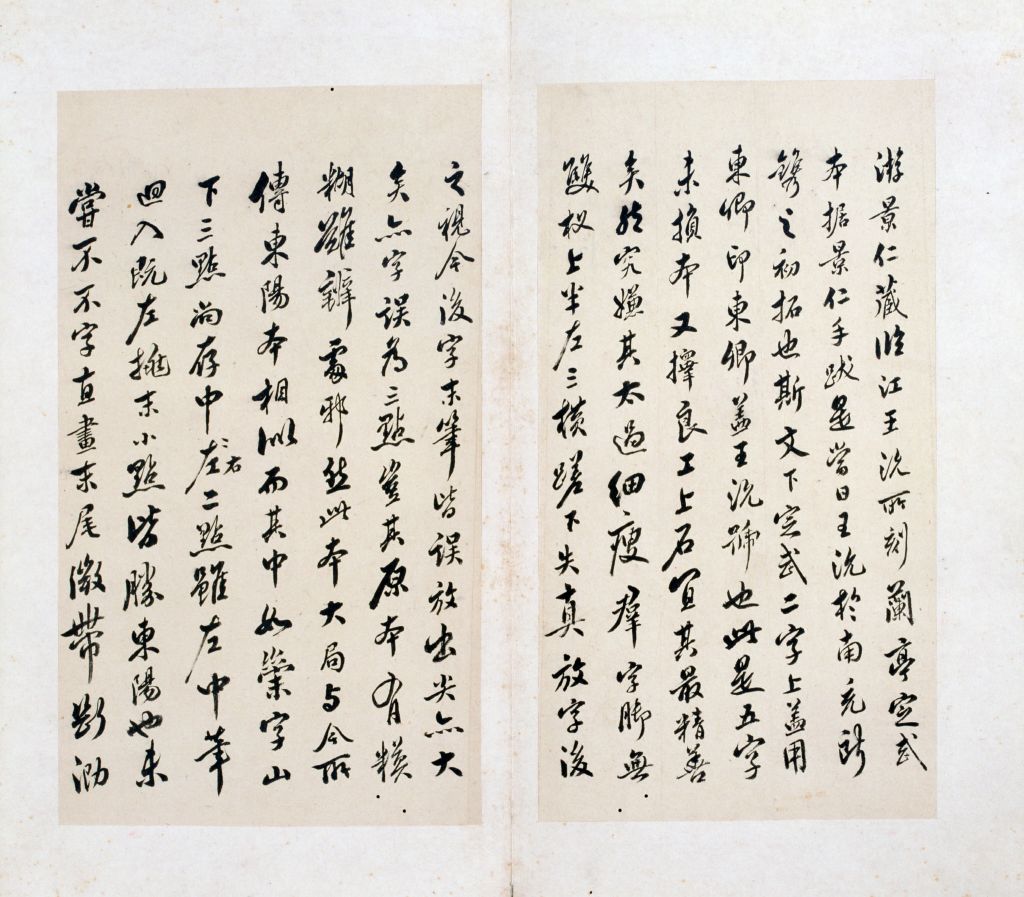 游景仁藏臨江王沇所刻蘭亭定武
本據景仁手跋是當日王沇於南充所
鐫之初拓也斯文下定武二字上蓋用
東卿印東卿蓋王沇號也此是五字
未損本又擇良工上石宜其最精善
矣然究嫌其太過細瘦羣字腳無
雙杈上半左二橫蹉下失真放字後
之視今後字末筆皆誤放出尖亦大
矣亦字誤為三點豈其原本有模
糊難辨處邪然此本大局与今所
傳東陽本相似而其中如崇字山
下三點尚存中左右二點雖左中筆
迴入既左推末小點皆勝東陽也未
嘗不不字直畫末尾微帶斷泐